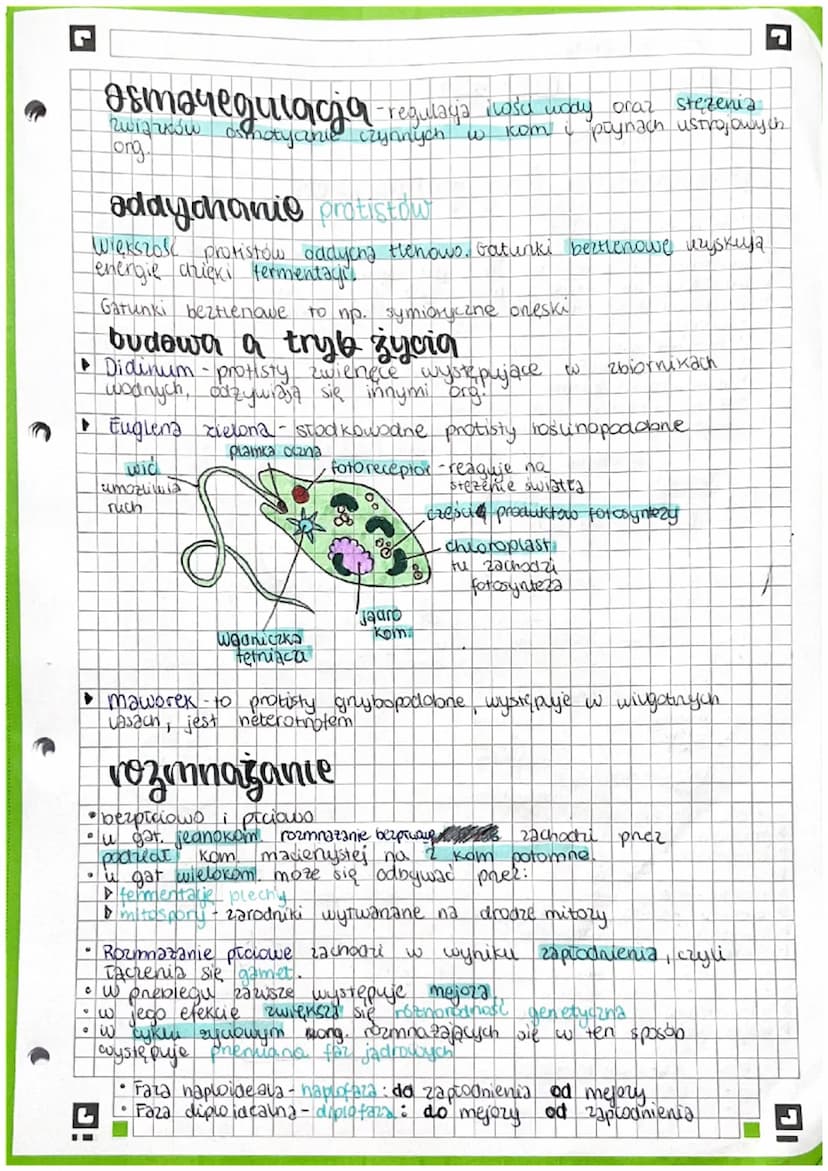 osmoregulacja - regulacja ilości wody oraz stężenia
związków osmotycznie czynnych w kom i płynach ustrojowych
org.
oddychanie protistów
Większość protistów oddycha tlenowo. Gatunki beztlenowe uzyskują
energię dzięki fermentacji.
Gatunki beztlenowe to np. symbiotyczne orzęski
budowa a tryb życia
Didinum - protisty zwierzęce występujące w zbiornikach
wodnych, odżywiają się innymi org.
Euglena zielona - słodkowodne protisty roślinopodobne
plamka oczna
wić
umożliwia
ruch
fotoreceptor - reaguje na
stężenie światła
części produktów fotosyntezy
chloroplast
tu zachodzi
fotosynteza
jądro
kom.
wodniczka
tętniąca
maworek - to protisty grzybopodobne, występuje w wilgotnych
lasach, jest heterotrofem
rozmnażanie
• bezpłciowo i płciowo
• w gat. jednokom. rozmnażanie bezpłciowe zachodzi przez
podział kom. macierzystej na 2 kom potomne.
• w gat wielokom. może się odbywać przez:
fermentację plechy
mitospory - zarodniki wytwarzane na drodze mitozy
• Rozmnażanie płciowe zachodzi w wyniku zapłodnienia, czyli
łączenia się gamet.
• w przebiegu zawsze występuje mejoza
• w jego efekcie zwiększa się różnorodność genetyczna
• w cyklu życiowym org. rozmnażających się w ten sposób
występuje przemiana faz jądrowych
• Faza haploidealna - haplofaza: do zapłodnienia od mejozy
• Faza diploidalna - diplofaza: do mejozy od zapłodnienia